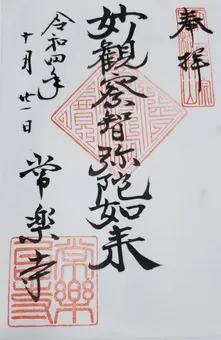 奉拝
妙観察智弥陀如来
令和四年
十月廿一日
常楽寺
常樂寺